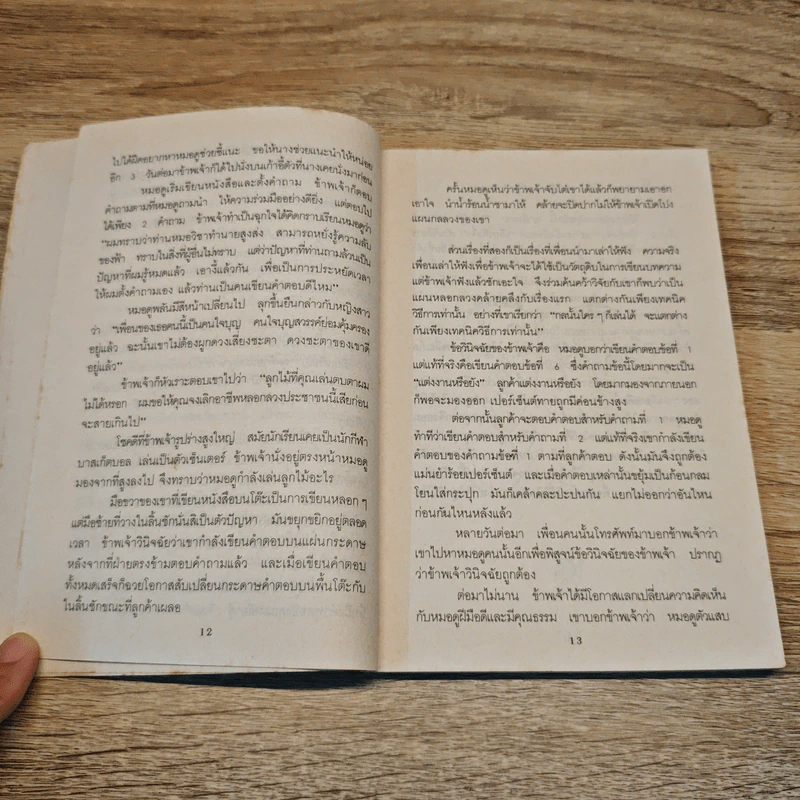 ไปได้มีคอยากหาหมอดูช่วยชี้แนะ ขอให้นางช่วยแนะนำให้หน่อย
อีก 3 วันต่อมาข้าพเจ้าก็ได้ไปนั่งบนเก้าอี้ตัวที่นางเคยนั่งมาก่อน
หมอดูเริ่มเขียนหนังสือและตั้งคำถาม ข้าพเจ้าก็ตอบ
คำถามตามที่หมอดูถามนำ ให้ความร่วมมืออย่างดียิ่ง แต่ตอบไป
ได้เพียง 2 คำถาม ข้าพเจ้าทำเป็นฉุกใจได้คิดกราบเรียนหมอดูว่า
"ผมทราบว่าท่านหมอวิชาทำนายสูงส่ง สามารถหยั่งรู้ความลับ
ของฟ้า ทราบในสิ่งที่ผู้อื่นไม่ทราบ แต่ว่าปัญหาที่ท่านถามล้วนเป็น
ปัญหาที่ผมรู้หมดแล้ว เอางี้แล้วกัน เพื่อเป็นการประหยัดเวลา
ให้ผมตั้งคำถามเอง แล้วท่านเป็นคนเขียนคำตอบดีไหม"
หมอดูพลันมีสีหน้าเปลี่ยนไป ลุกขึ้นยืนกล่าวกับหญิงสาว
ว่า "เพื่อนของเธอคนนี้เป็นคนใจบุญ คนใจบุญสวรรค์ย่อมคุ้มครอง
อยู่แล้ว ฉะนั้นเขาไม่ต้องผูกดวงเสี่ยงชะตา ดวงชะตาของเขาดี
อยู่แล้ว"
ข้าพเจ้าก็หัวเราะตอบเขาไปว่า "ลูกไม้ที่คุณเล่นตบตาผม
ไม่ได้หรอก ผมขอให้คุณจงเลิกอาชีพหลอกลวงประชาชนนี้เสียก่อน
จะสายเกินไป"
โชคดีที่ข้าพเจ้ารูปร่างสูงใหญ่ สมัยนักเรียนเคยเป็นนักกีฬา
บาสเก็ตบอล เล่นเป็นตัวเซ็นเตอร์ ข้าพเจ้านั่งอยู่ตรงหน้าหมอดู
มองจากที่สูงลงไป จึงทราบว่าหมอดูกำลังเล่นลูกไม้อะไร
มือขวาของเขาที่เขียนหนังสือบนโต๊ะเป็นการเขียนหลอกๆ
แต่มือซ้ายที่วางในลิ้นชักนั่นสิเป็นตัวปัญหา มันขยุกขยิกอยู่ตลอด
เวลา ข้าพเจ้าวินิจฉัยว่าเขากำลังเขียนคำตอบบนแผ่นกระดาษ
หลังจากที่ฝ่ายตรงข้ามตอบคำถามแล้ว และเมื่อเขียนคำตอบ
ทั้งหมดเสร็จก็ฉวยโอกาสสับเปลี่ยนกระดาษคำตอบบนพื้นโต๊ะกับ
ในลิ้นชักขณะที่ลูกค้าเผลอ
12
ครั้นหมอดูเห็นว่าข้าพเจ้าจับไต๋เขาได้แล้วก็พยายามเอาอก
เอาใจ นำน้ำร้อนน้ำชามาให้ คล้ายจะปิดปากไม่ให้ข้าพเจ้าเปิดโปง
แผนกลลวงของเขา
ส่วนเรื่องที่สองก็เป็นเรื่องที่เพื่อนนำมาเล่าให้ฟัง ความจริง
เพื่อนเล่าให้ฟังเพื่อข้าพเจ้าจะได้ใช้เป็นวัตถุดิบในการเขียนบทความ
แต่ข้าพเจ้าฟังแล้วชักเอะใจ จึงร่วมค้นคว้าวิจัยกับเขาก็พบว่าเป็น
แผนหลอกลวงคล้ายคลึงกับเรื่องแรก แตกต่างกันเพียงเทคนิค
วิธีการเท่านั้น อย่างที่เขาเรียกว่า "กลนั้นใครๆ ก็เล่นได้ จะแตกต่าง
กันเพียงเทคนิควิธีการเท่านั้น"
ข้อวินิจฉัยของข้าพเจ้าคือ หมอดูบอกว่าเขียนคำตอบข้อที่ 1
แต่แท้ที่จริงคือเขียนคำตอบข้อที่ 6 ซึ่งคำถามข้อนี้โดยมากจะเป็น
"แต่งงานหรือยัง" ลูกค้าแต่งงานหรือยัง โดยมากมองจากภายนอก
ก็พอจะมองออก เปอร์เซ็นต์ทายถูกมีค่อนข้างสูง
ต่อจากนั้นลูกค้าจะตอบคำตอบสำหรับคำถามที่ 1 หมอดู
ทำทีว่าเขียนคำตอบสำหรับคำถามที่ 2 แต่แท้ที่จริงเขากำลังเขียน
คำตอบของคำถามข้อที่ 1 ตามที่ลูกค้าตอบ ดังนั้นมันจึงถูกต้อง
แม่นยำร้อยเปอร์เซ็นต์ และเมื่อคำตอบเหล่านั้นขยุ้มเป็นก้อนกลม
โยนใส่กระปุก มันก็เคล้าคละปะปนกัน แยกไม่ออกว่าอันไหน
ก่อนกันไหนหลังแล้ว
หลายวันต่อมา เพื่อนคนนั้นโทรศัพท์มาบอกข้าพเจ้าว่า
เขาไปหาหมอดูคนนั้นอีกเพื่อพิสูจน์ข้อวินิจฉัยของข้าพเจ้า ปรากฏ
ว่าข้าพเจ้าวินิจฉัยถูกต้อง
ต่อมาไม่นาน ข้าพเจ้าได้มีโอกาสแลกเปลี่ยนความคิดเห็น
กับหมอดูฝีมือดีและมีคุณธรรม เขาบอกข้าพเจ้าว่า หมอดูตัวแสบ
13